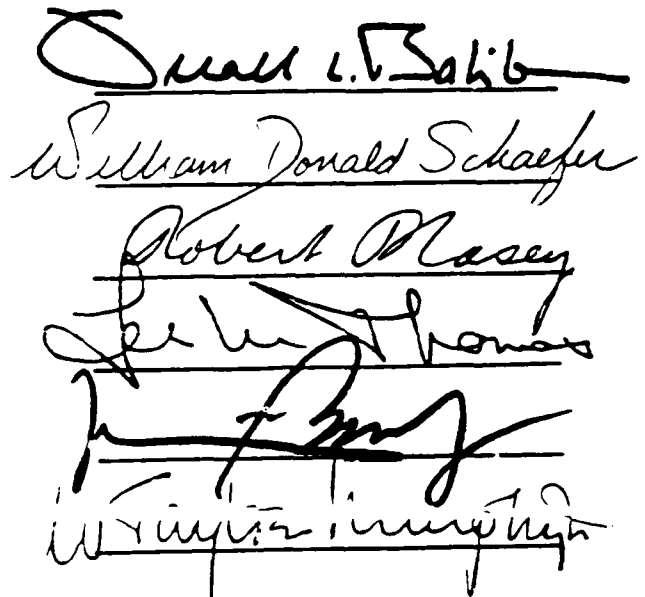 Gerald L. Baliles
William Donald Schaefer
Robert P Casey
Lee M Thomas
W Tayloe Murphy Jr